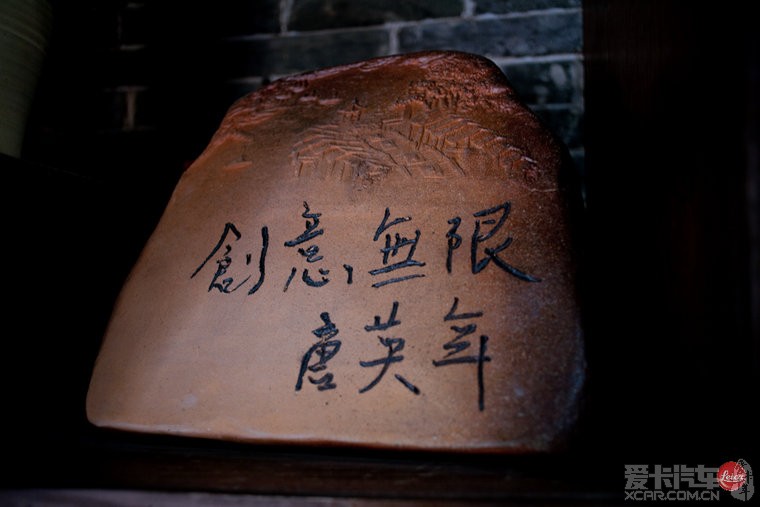 創意無限
唐英年
爱卡汽车
XCAR.COM.CN
Leica